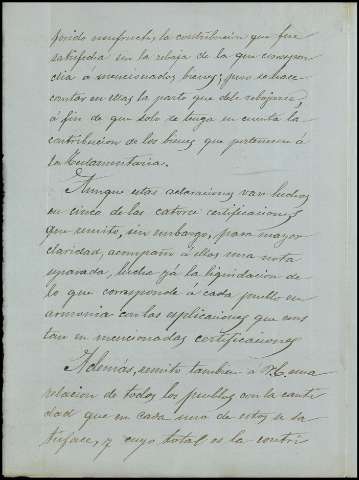 ferido usufructo, la contribucion que fue
satisfecha en la rebaja de la que correspon-
dia á mencionados bienes; pero se hace
constar en ellas la parte que debe rebajarse,
á fin de que solo se tenga en cuenta la
contribucion de los bienes que pertenecen á
la Testamentaria.
Aunque estas aclaraciones van hechas
en cinco de las catorce certificaciones
que remito, sin embargo, para mayor
claridad, acompaño á ellas una nota
separada, hecha yá la liquidacion de
lo que corresponde á cada pueblo en
armonia con las esplicaciones que cons-
tan en mencionadas certificaciones
Además, remito tambien á V. una
relacion de todos los pueblos con la canti-
dad que en cada uno de estos se sa-
tisface, y cuyo total es la contri-